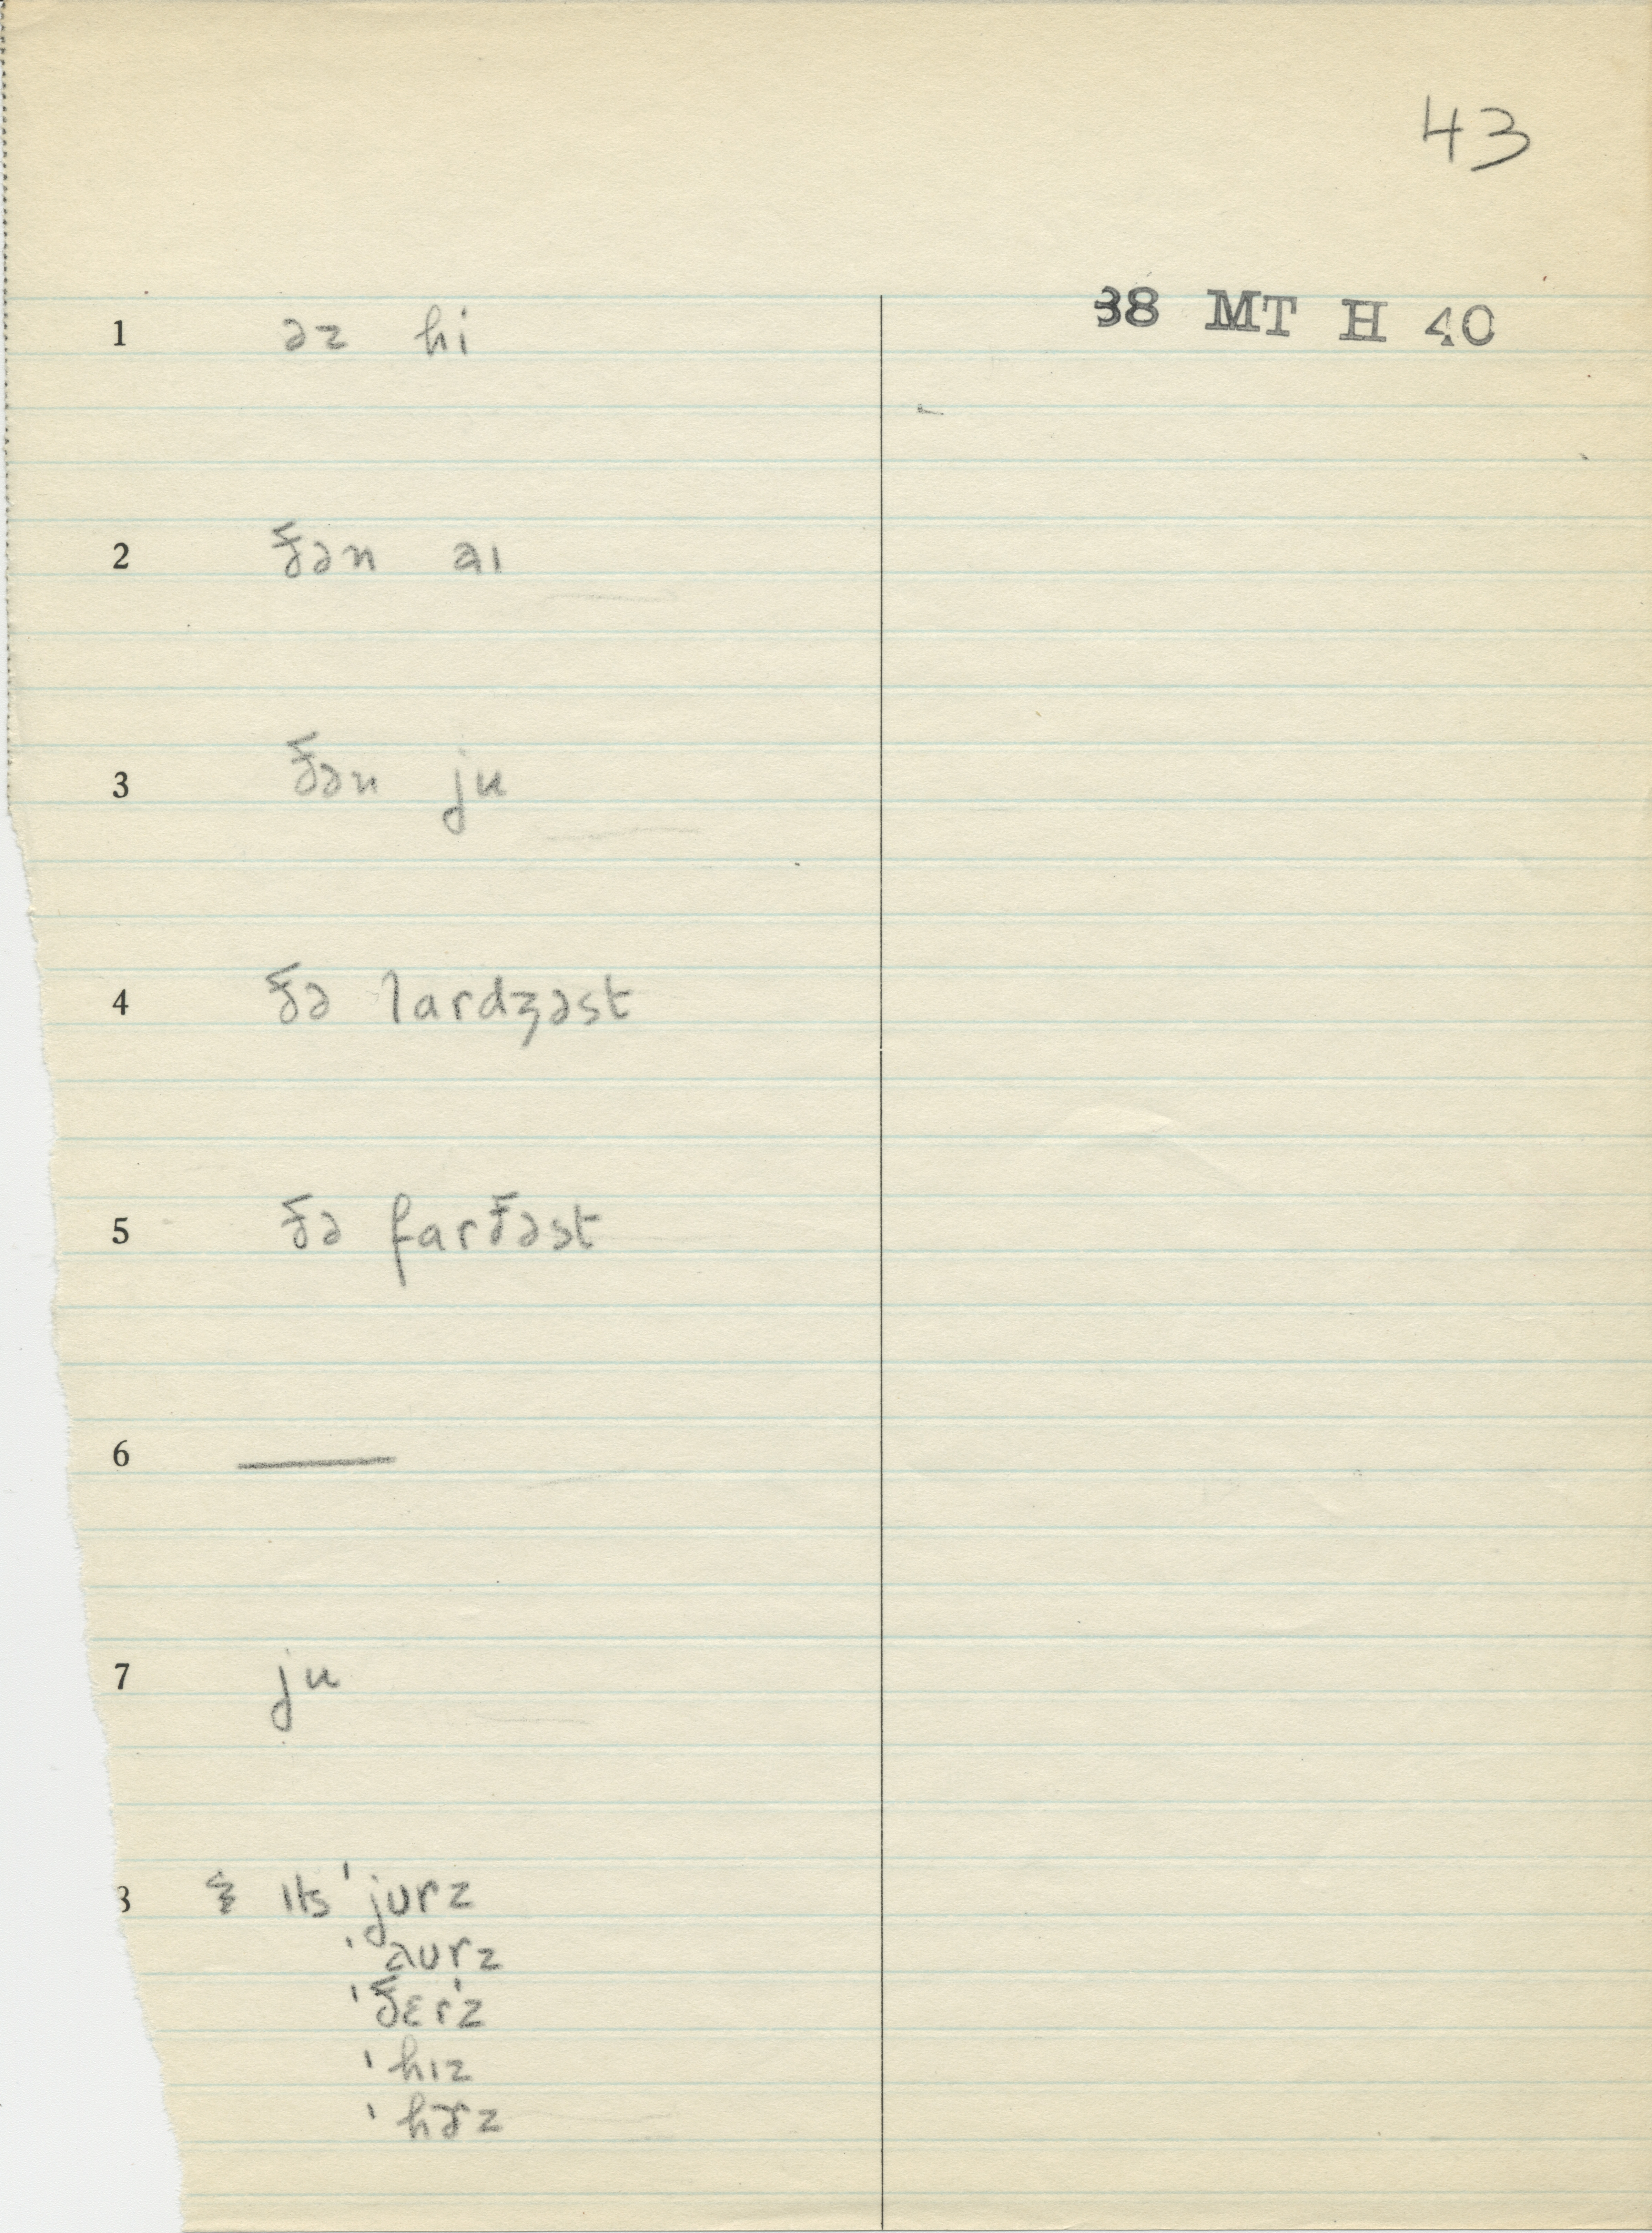 43
38 MT H 40
1 əz hi
2 ðən aɪ
3 ðən ju
4 ðə lardʒəst
5 ðə farðəst
6 ——
7 ju
8 ɪts 'jʊrz
'aʊrz
'ðɛr'z
'hɪz
'hɝz